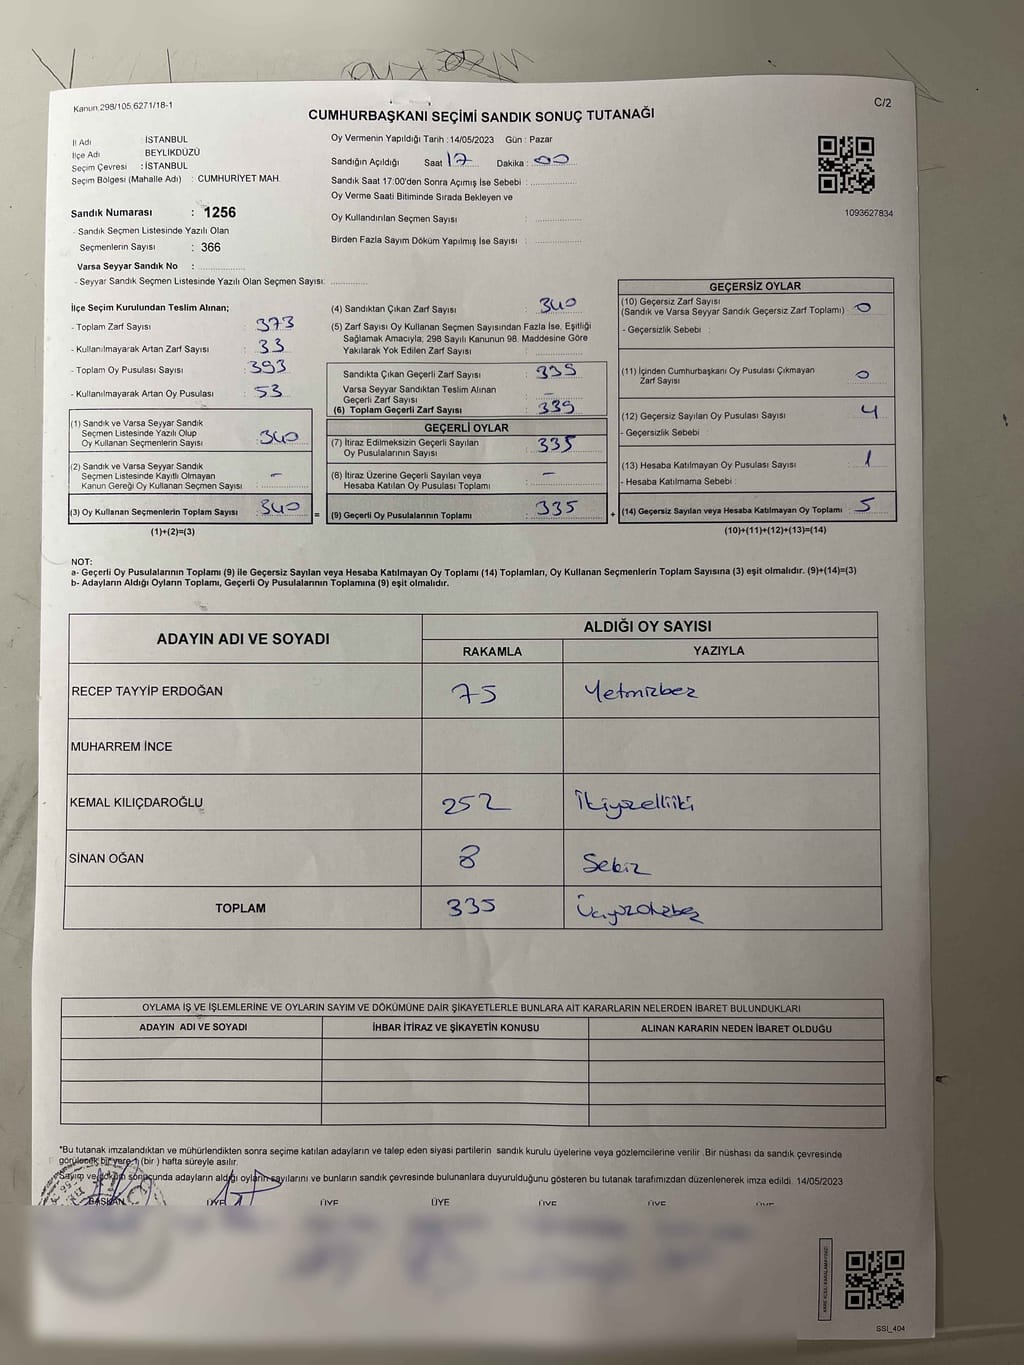 Kanun 298/105 6271/18-1
C/2
CUMHURBAŞKANI SEÇİMİ SANDIK SONUÇ TUTANAĞI
İl Adı : İSTANBUL
İlçe Adı BEYLİKDÜZÜ
Seçim Çevresi : İSTANBUL
Seçim Bölgesi (Mahalle Adı) : CUMHURİYET MAH.
Oy Vermenin Yapıldığı Tarih : 14/05/2023 Gün : Pazar
Sandığın Açıldığı Saat 17 Dakika : 00
Sandık Saat 17:00'den Sonra Açımış İse Sebebi :
Oy Verme Saati Bitiminde Sırada Bekleyen ve
Oy Kullandırılan Seçmen Sayısı :
Birden Fazla Sayım Döküm Yapılmış İse Sayısı :
1093627834
Sandık Numarası : 1256
- Sandık Seçmen Listesinde Yazılı Olan
Seçmenlerin Sayısı : 366
Varsa Seyyar Sandık No :
- Seyyar Sandık Seçmen Listesinde Yazılı Olan Seçmen Sayısı:
İlçe Seçim Kurulundan Teslim Alınan;
- Toplam Zarf Sayısı : 373
- Kullanılmayarak Artan Zarf Sayısı : 33
- Toplam Oy Pusulası Sayısı : 393
- Kullanılmayarak Artan Oy Pusulası : 53
(1) Sandık ve Varsa Seyyar Sandık
Seçmen Listesinde Yazılı Olup
Oy Kullanan Seçmenlerin Sayısı : 340
(2) Sandık ve Varsa Seyyar Sandık
Seçmen Listesinde Kayıtlı Olmayan
Kanun Gereği Oy Kullanan Seçmen Sayısı : -
(3) Oy Kullanan Seçmenlerin Toplam Sayısı : 340
(1)+(2)=(3)
(4) Sandıktan Çıkan Zarf Sayısı : 340
(5) Zarf Sayısı Oy Kullanan Seçmen Sayısından Fazla İse, Eşitliği
Sağlamak Amacıyla; 298 Sayılı Kanunun 98. Maddesine Göre
Yakılarak Yok Edilen Zarf Sayısı :
Sandıkta Çıkan Geçerli Zarf Sayısı : 339
Varsa Seyyar Sandıktan Teslim Alınan
Geçerli Zarf Sayısı : -
(6) Toplam Geçerli Zarf Sayısı : 339
GEÇERLİ OYLAR
(7) İtiraz Edilmeksizin Geçerli Sayılan
Oy Pusulalarının Sayısı : 335
(8) İtiraz Üzerine Geçerli Sayılan veya
Hesaba Katılan Oy Pusulası Toplamı : -
=
(9) Geçerli Oy Pusulalarının Toplamı : 335
+
GEÇERSİZ OYLAR
(10) Geçersiz Zarf Sayısı
(Sandık ve Varsa Seyyar Sandık Geçersiz Zarf Toplamı) : 0
- Geçersizlik Sebebi :
(11) İçinden Cumhurbaşkanı Oy Pusulası Çıkmayan
Zarf Sayısı : 0
(12) Geçersiz Sayılan Oy Pusulası Sayısı : 4
- Geçersizlik Sebebi :
(13) Hesaba Katılmayan Oy Pusulası Sayısı : 1
- Hesaba Katılmama Sebebi :
(14) Geçersiz Sayılan veya Hesaba Katılmayan Oy Toplamı : 5
(10)+(11)+(12)+(13)=(14)
NOT:
a- Geçerli Oy Pusulalarının Toplamı (9) ile Geçersiz Sayılan veya Hesaba Katılmayan Oy Toplamı (14) Toplamları, Oy Kullanan Seçmenlerin Toplam Sayısına (3) eşit olmalıdır. (9)+(14)=(3)
b- Adayların Aldığı Oyların Toplamı, Geçerli Oy Pusulalarının Toplamına (9) eşit olmalıdır.
ADAYIN ADI VE SOYADI
ALDIĞI OY SAYISI
RAKAMLA YAZIYLA
RECEP TAYYİP ERDOĞAN 75 Yetmizbez
MUHARREM İNCE
KEMAL KILIÇDAROĞLU 252 İkiyüzelliiki
SİNAN OĞAN 8 Sekiz
TOPLAM 335 Üçyüzotuzbeş
OYLAMA İŞ VE İŞLEMLERİNE VE OYLARIN SAYIM VE DÖKÜMÜNE DAİR ŞİKAYETLERLE BUNLARA AİT KARARLARIN NELERDEN İBARET BULUNDUKLARI
ADAYIN ADI VE SOYADI İHBAR İTİRAZ VE ŞİKAYETİN KONUSU ALINAN KARARIN NEDEN İBARET OLDUĞU
*Bu tutanak imzalandıktan ve mühürlendikten sonra seçime katılan adayların ve talep eden siyasi partilerin sandık kurulu üyelerine veya gözlemcilerine verilir .Bir nüshası da sandık çevresinde
görülecek bir yere 1 (bir ) hafta süreyle asılır.
Sayım ve döküm sonucunda adayların aldığı oyların sayılarını ve bunların sandık çevresinde bulunanlara duyurulduğunu gösteren bu tutanak tarafımızdan düzenlenerek imza edildi. 14/05/2023
BAŞKAN ÜYE ÜYE ÜYE ÜYE ÜYE ÜYE
SSI_404